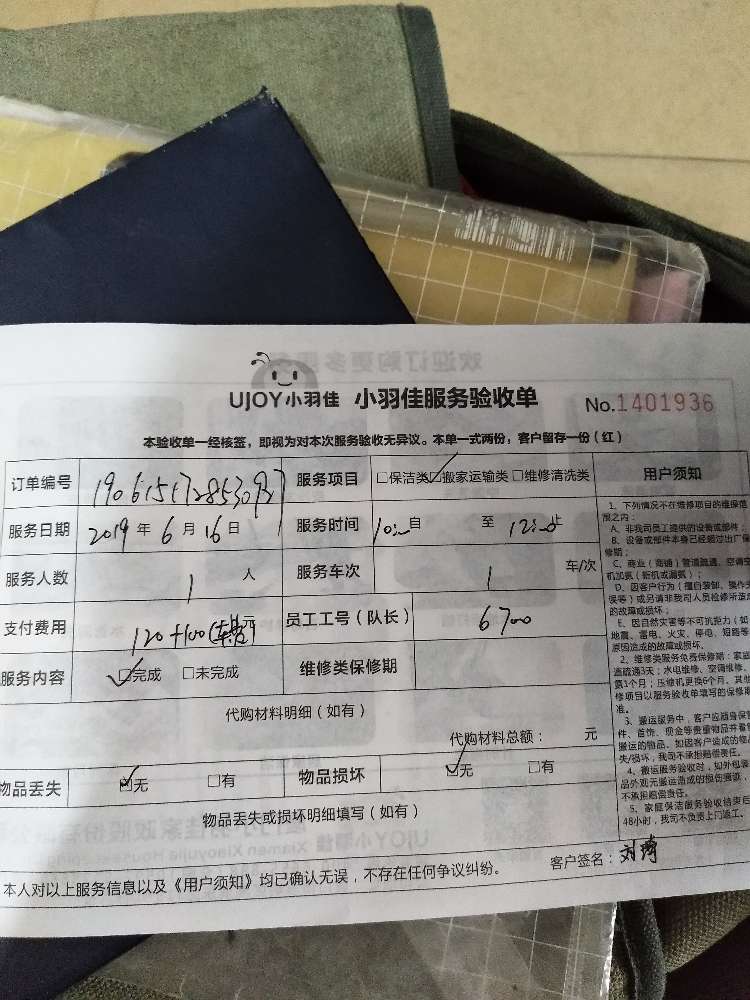 UJOY小羽佳 小羽佳服务验收单 No.1401936
本验收单一经核签，即视为对本次服务验收无异议。本单一式两份，客户留存一份（红）
订单编号 190615172853092 服务项目 □保洁类 ☑搬家运输类 □维修清洗类 用户须知
服务日期 2019年6月16日 服务时间 10:00自 至 12:00止
服务人数 1 人 服务车次 1 车/次
支付费用 120+100(车费)元 员工工号（队长） 6700
服务内容 ☑完成 □未完成 维修类保修期
代购材料明细（如有）
代购材料总额： 元
物品丢失 ☑无 □有 物品损坏 ☑无 □有
物品丢失或损坏明细填写（如有）
本人对以上服务信息以及《用户须知》均已确认无误，不存在任何争议纠纷。 客户签名：刘
1、下列情况不在维修项目的维保范
围之内：
A、非我司员工提供的设备或部件
B、设备或部件本身已经超过出厂保
修期；
C、商业（商铺）管道疏通、空调空
机加氨（新机或漏氨）；
D、因客户行为（擅自装卸、操作失
误等）或另请非我司人员检修所造成
的故障或损坏；
E、因自然灾害等不可抗能力（如
地震、雷电、火灾、停电、短路等
原因造成的故障或损坏。
2、维修类服务免费保修期：家庭
道疏通3天；水电维修、空调维修、
氨1个月；压缩机更换6个月，其他
修项目以服务验收单填写的保修期
准。
3、搬运服务中，客户应随身保管
件、首饰、现金等贵重物品并看管
搬运的物品，如因客户造成的物品
失/损坏，我司不承担赔偿责任。
4、搬运服务验收时，如外包装
品外观无搬运造成的损伤痕迹，
不承担赔偿责任。
5、家庭保洁服务验收结束后
48小时，我司不负责上门返工。